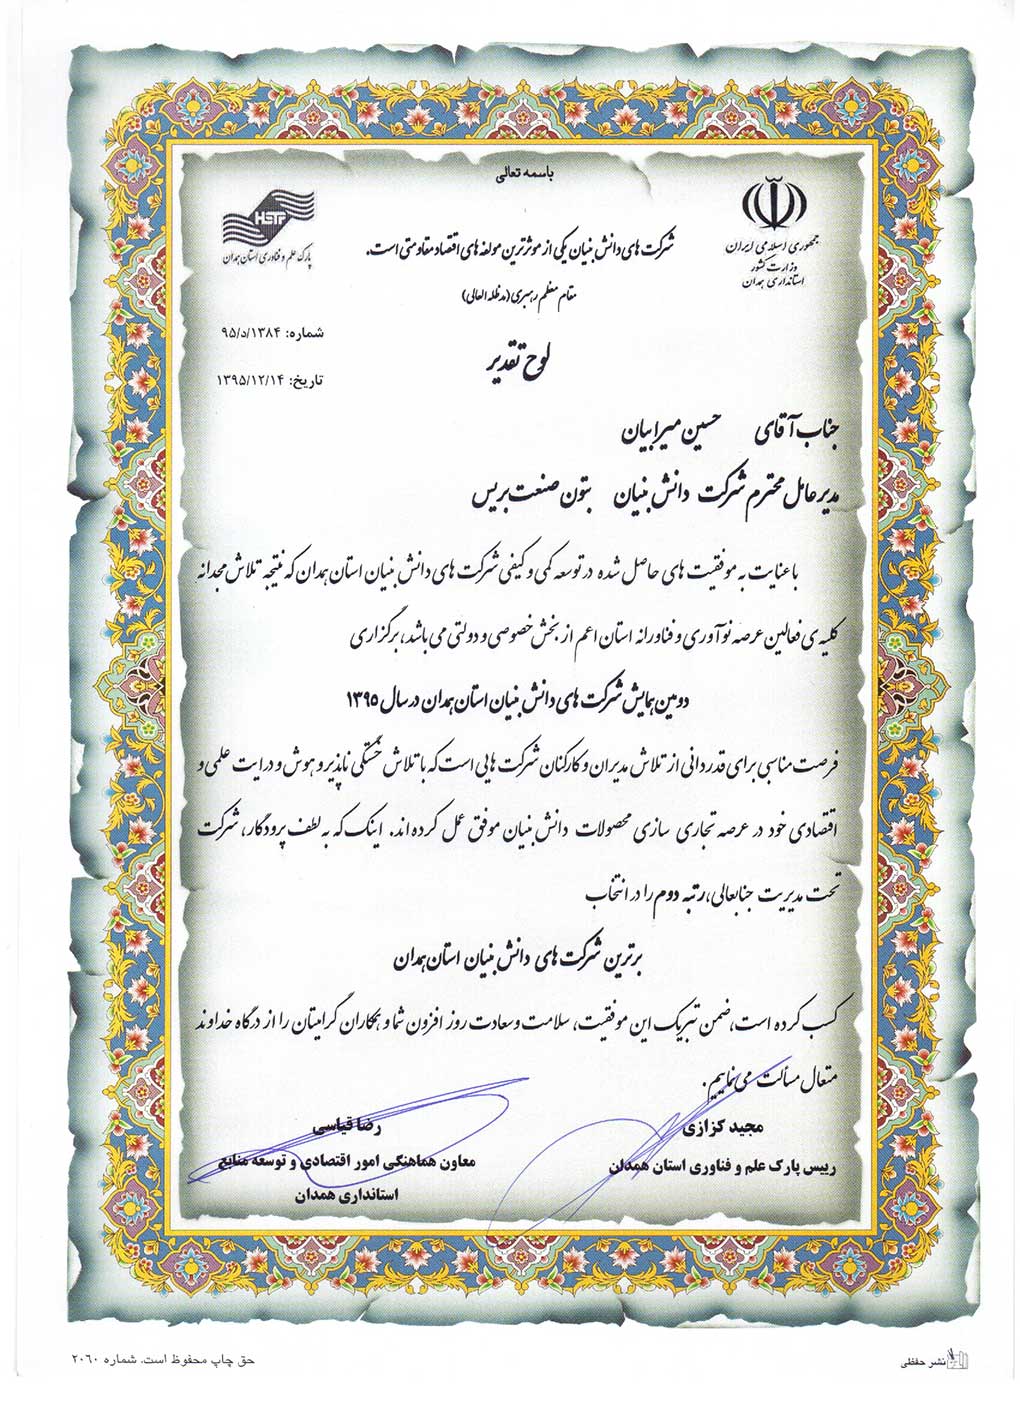 باسمه تعالی
HSTP
پارک علم و فناوری استان همدان
جمهوری اسلامی ایران
وزارت کشور
استانداری همدان
شرکت های دانش بنیان یکی از موثرترین مولفه های اقتصاد مقاومتی است.
مقام معظم رهبری (مدظله العالی)
شماره: ۹۵/د/۱۳۸۴
تاریخ: ۱۳۹۵/۱۲/۱۴
لوح تقدیر
جناب آقای حسین میرابیان
مدیرعامل محترم شرکت دانش بنیان بتون صنعت بریس
با عنایت به موفقیت های حاصل شده در توسعه کمی و کیفی شرکت های دانش بنیان استان همدان که نتیجه تلاش مجدانه
کلیه ی فعالین عرصه نوآوری و فناورانه استان اعم از بخش خصوصی و دولتی می باشد، برگزاری
دومین همایش شرکت های دانش بنیان استان همدان در سال ۱۳۹۵
فرصت مناسبی برای قدردانی از تلاش مدیران و کارکنان شرکت هایی است که با تلاش خستگی ناپذیر و هوش و درایت علمی و
اقتصادی خود در عرصه تجاری سازی محصولات دانش بنیان موفق عمل کرده اند. اینک که به لطف پرودگار، شرکت
تحت مدیریت جنابعالی، رتبه دوم را در انتخاب
برترین شرکت های دانش بنیان استان همدان
کسب کرده است، ضمن تبریک این موفقیت، سلامت و سعادت روز افزون شما و همکاران گرامیتان را از درگاه خداوند
متعال مسألت می نماییم.
مجید کزازی
رییس پارک علم و فناوری استان همدان
رضا قیاسی
معاون هماهنگی امور اقتصادی و توسعه منابع
استانداری همدان
نشر حفظی
حق چاپ محفوظ است. شماره ۲۰۶۰